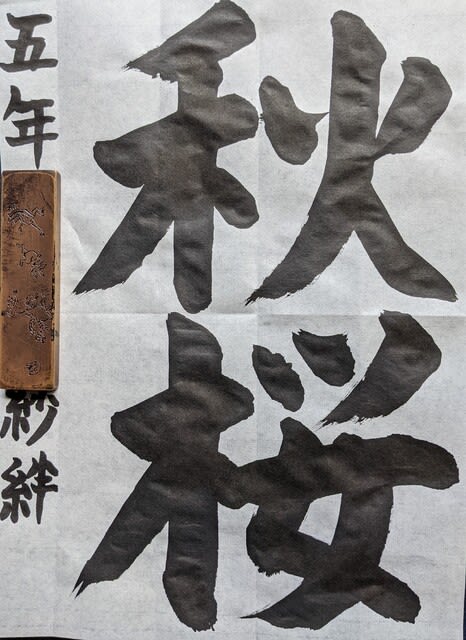 秋桜
五年
紗絆